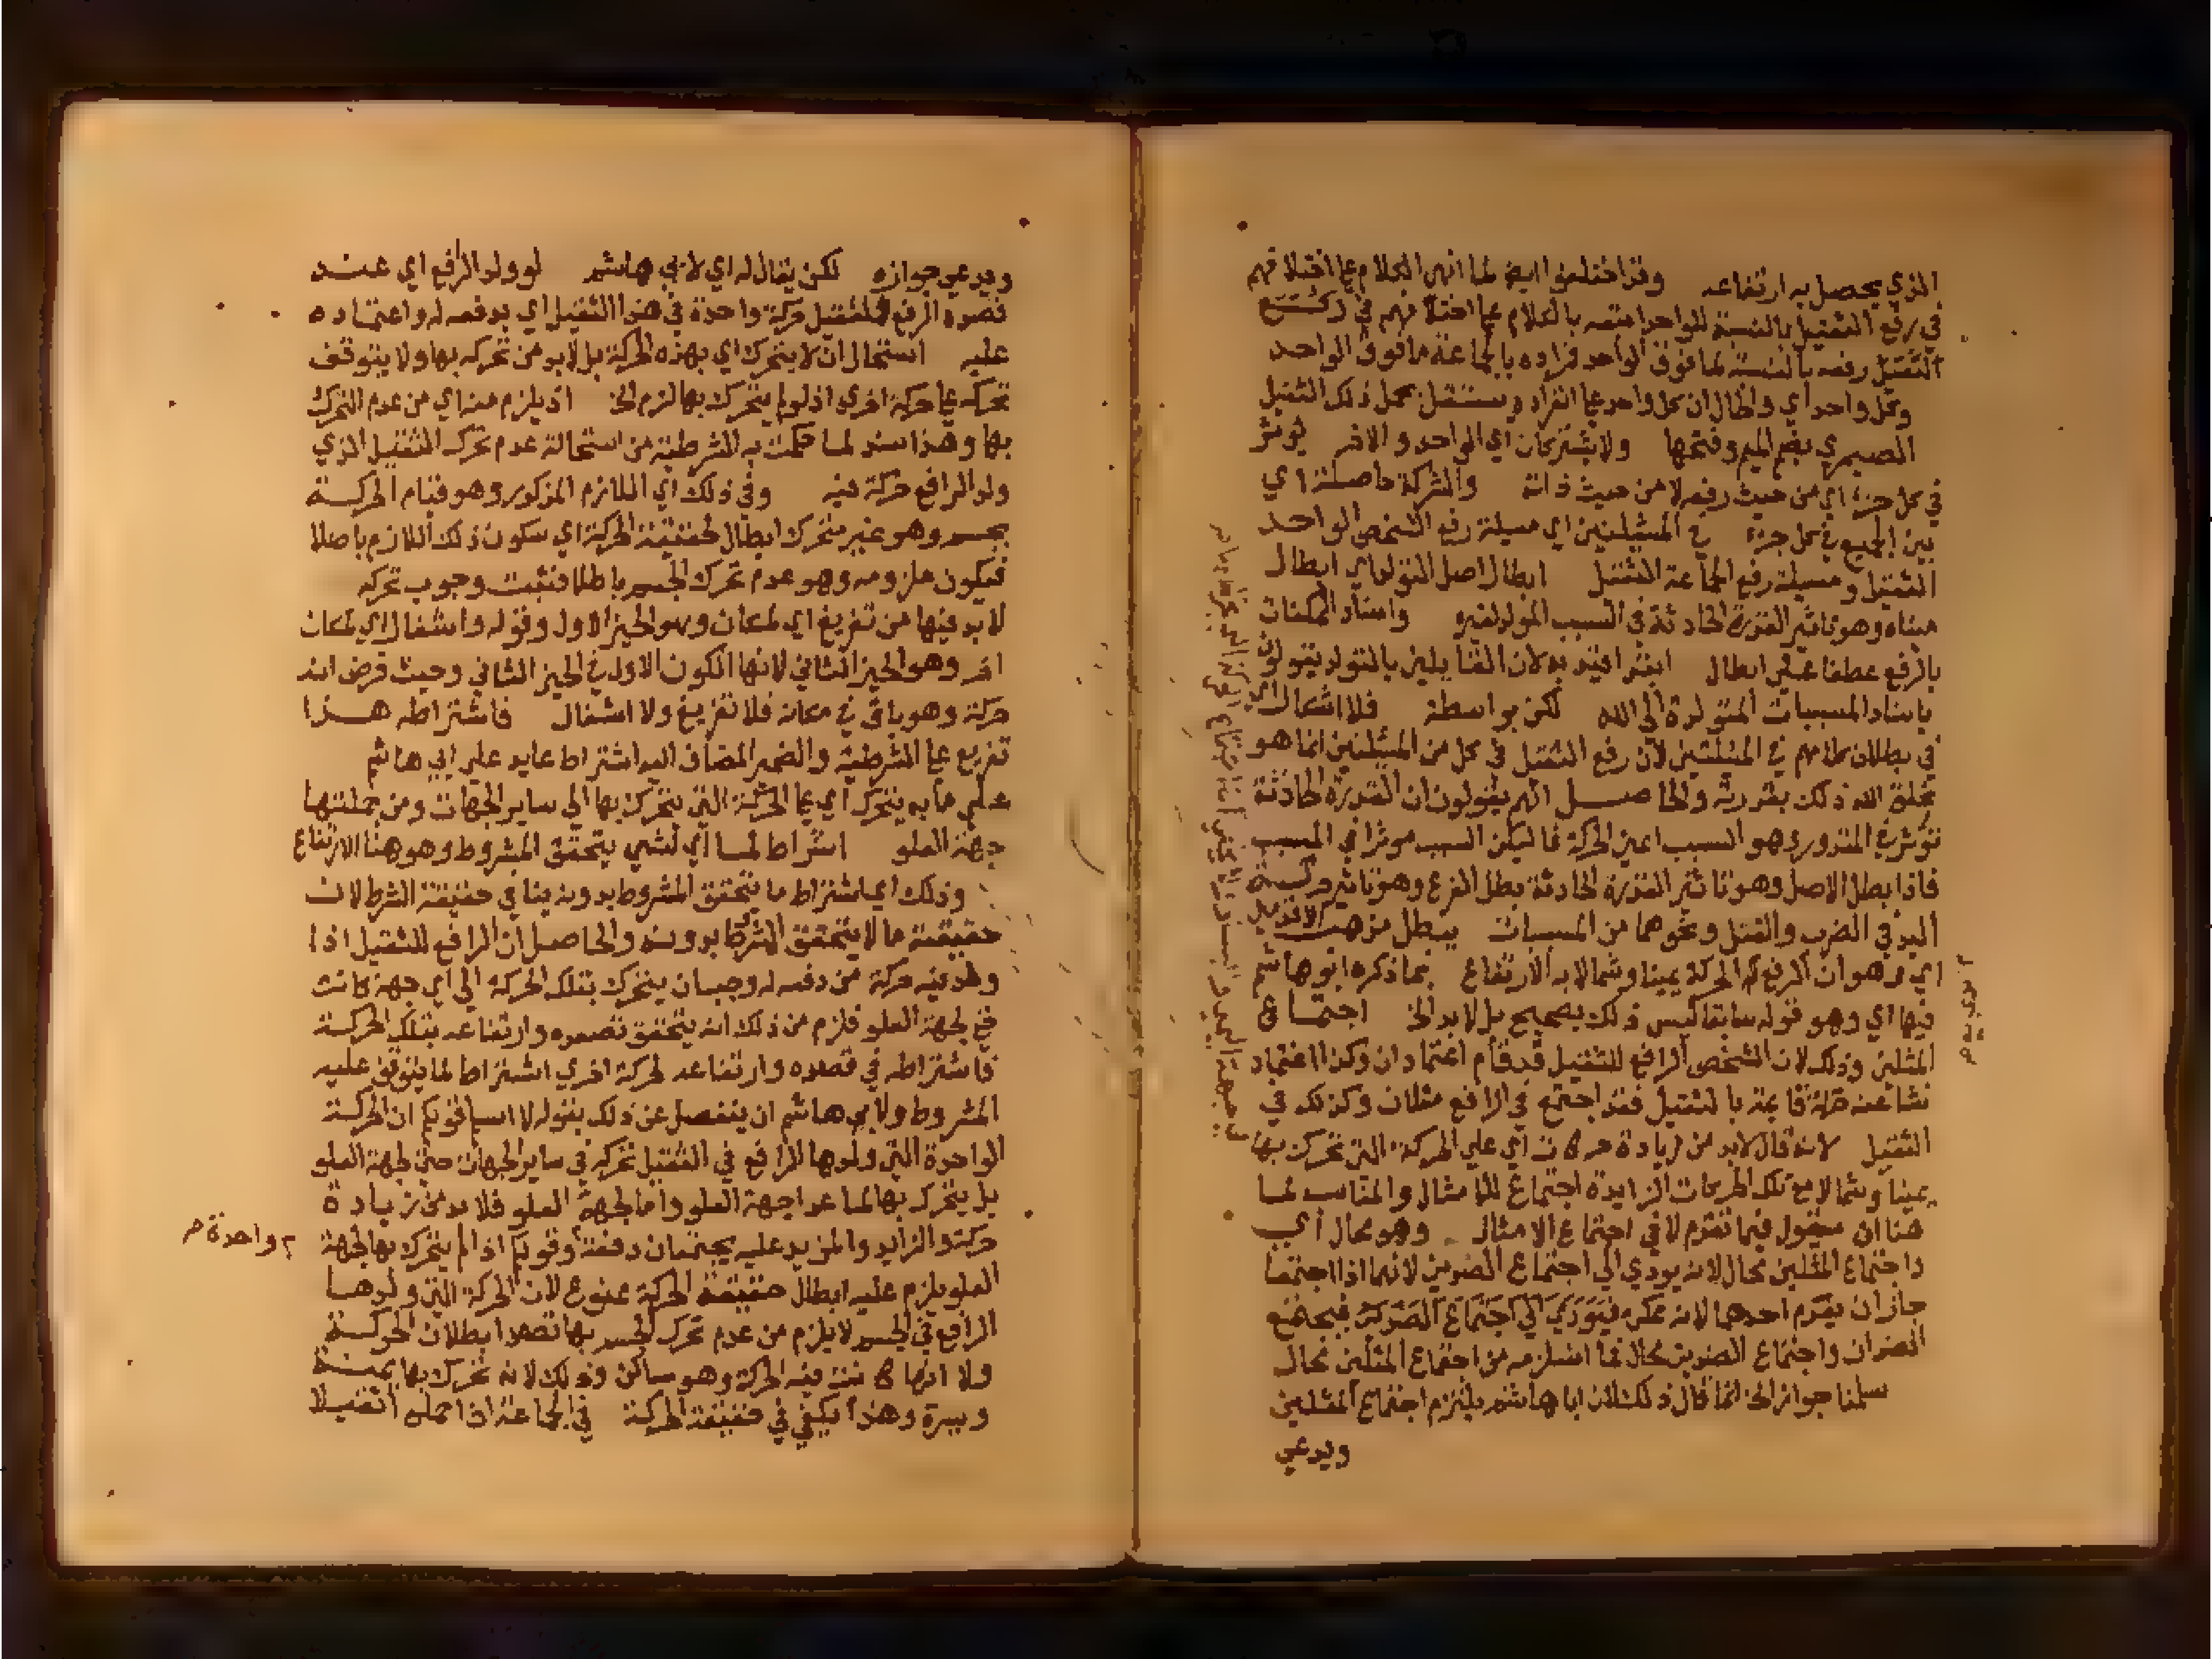 الذي يحصل به ارتفاعه وقد اختلفوا ايضا لما انهى الكلام على اختلافهم
في رفع الثقيل بالنسبة للواحد اتبعه بالكلام على اختلافهم في
الثقيل رفعه بالنسبة لما فوق الواحد فراده بالجماعة ما فوق الواحد
وكل واحد اي والحال ان كل واحد على انفراده يستقل بحمل ذلك الثقيل
الصيمري بضم الميم وفتحها ولا يشتركان اي الواحد والاخر يوثر
في كل جزء اي من حيث رفعه لا من حيث ذاته والشركة حاصلة اي
بين الجميع في كل جزء في المسئلتين اي مسيلة رفع الشخص الواحد
الثقيل ومسيلة رفع الجماعة الثقيل ابطال اصل التولد اي ابطال
مبناه وهو تاثير القدرة الحادثة في السبب المولد لغيره واسناد الممكنات
بالرفع عطفا على ابطال ابتدا قيد به لان القايلين بالتولد يقولون
باسناد المسببات المتولدة الى الله لكن بواسطة فلا اشكال اي
في بطلان كلامهم في المسئلتين لان رفع الثقيل في كل من المسئلتين انما هو
بخلق الله ذلك بقدرته والحاصل انهم يقولون ان القدرة الحادثة
توثر في المقدور وهو السبب اعني الحركة فاليكن السبب موثرا في المسبب
فاذا بطل الاصل وهو تاثير القدرة الحادثة بطل الفرع وهو تاثير حركة
اليد في الضرب والقتل ونحوهما من المسببات يبطل مذهب
اي وهو ان الرفع الحركة يمينا وشمالا به الارتفاع بما ذكره ابو هاشم
فيها اي وهو قوله سابقا ليس ذلك بصحيح بل لا بد الخ اجتماع
المثلين وذلك لان الشخص الرافع للثقيل قد قام اعتمادان وكذا اعتماد
نشا عنه حركة قايمة بالثقيل فقد اجتمع في الرافع مثلان وكذلك في
الثقيل لانه قال لا بد من زيادة حركات اي على الحركة التي تحرك بها
يمينا وشمالا مع تلك الحركات الزايدة اجتماع للامثال والمناسب لما
هنا ان يقول فيما تقدم لا في اجتماع الامثال وهو محال اي
واجتماع المثلين محال لانه يودي الى اجتماع الضدين لانهما اذا اجتمعا
جاز ان يعدم احدهما لانه ممكن فيودي الى اجتماع الضدين فيجتمع
الضدان واجتماع الضدين محال فما استلزمه من اجتماع المثلين محال
سلمنا جواز الخ انما قال ذلك لان ابا هاشم يلتزم اجتماع المثلين
ويدعي
ويدعي جوازه لكن يقال له اي لابي هاشم لو ولد الرافع اي عند
قصده الرفع للثقيل حركة واحدة في هذا الثقيل اي بدفعه له واعتماده
عليه استحال ان لا يتحرك اي بهذه الحركة بل لا بد من تحركه بها ولا يتوقف
تحركه على حركة اخرى اذ لو لم يتحرك بها لزم الخ اذ يلزم منه اي من عدم التحرك
بها وهذا سند لما حكمت به الشرطية من استحالة عدم تحرك الثقيل الذي
ولد الرافع حركة فيه وفي ذلك اي اللازم المذكور وهو قيام الحركة
بجسم وهو غير متحرك ابطال لحقيقة الحركة اي سكون ذلك اللازم باطلا
فيكون ملزومه وهو عدم تحرك الجسم باطلا فثبت وجوب تحركه
لا بد فيها من تفريغ اي لمكان وهو الحيز الاول وقوله واشغال اي لمكان
اخر وهو الحيز الثاني لانها الكون الاول في الحيز الثاني وحيث فرض انه
حركة وهو باق في مكانه فلا تفريغ ولا اشغال فاشتراطه هذا
تفريع على الشرطية والضمير المضاف اليه اشتراط عايد على ابي هاشم
على ما به يتحرك اي على الحركة التي يتحرك بها الى ساير الجهات ومن جملتها
جهة العلو اشتراط لما اي لشي يتحقق المشروط وهو هنا الارتفاع
وذلك اي اشتراط ما يتحقق المشروط بدونه ينافي حقيقة الشرط لان
حقيقته ما لا يتحقق المشروط بدونه والحاصل ان الرافع للثقيل اذا
ولد فيه حركة من دفعه له وجب ان يتحرك بتلك الحركة الى اي جهة كانت
في لجهة العلو فلزم من ذلك انه يتحقق تصعده وارتفاعه بتلك الحركة
فاشتراطه في تصعده وارتفاعه لحركة اخرى اشتراط لما يتوقف عليه
المشروط ولابي هاشم ان ينفصل عن ذلك بقوله لا اسلم قولكم ان الحركة
الواحدة التي ولدها الرافع في الثقيل تحركه في ساير الجهات حتى لجهة العلو
بل يتحرك بها لما عدا جهة العلو واما لجهة العلو فلا بد من زيادة
حركة والزايد والمزيد عليه يجتمعان دفعة وقولكم اذا لم يتحرك بها لجهة
واحدة
العلو يلزم عليه ابطال حقيقة الحركة ممنوع لان الحركة التي ولدها
الرافع في الجسم لا يلزم من عدم تحرك الجسم بها تصعدا بطلان الحركة
ولا انها كانت فيه الحركة وهو ساكن وذلك لانه تحرك بها يمنة
ويسرة وهذا يكفي في حقيقة الحركة في الجماعة اذا حملوا ثقيلا